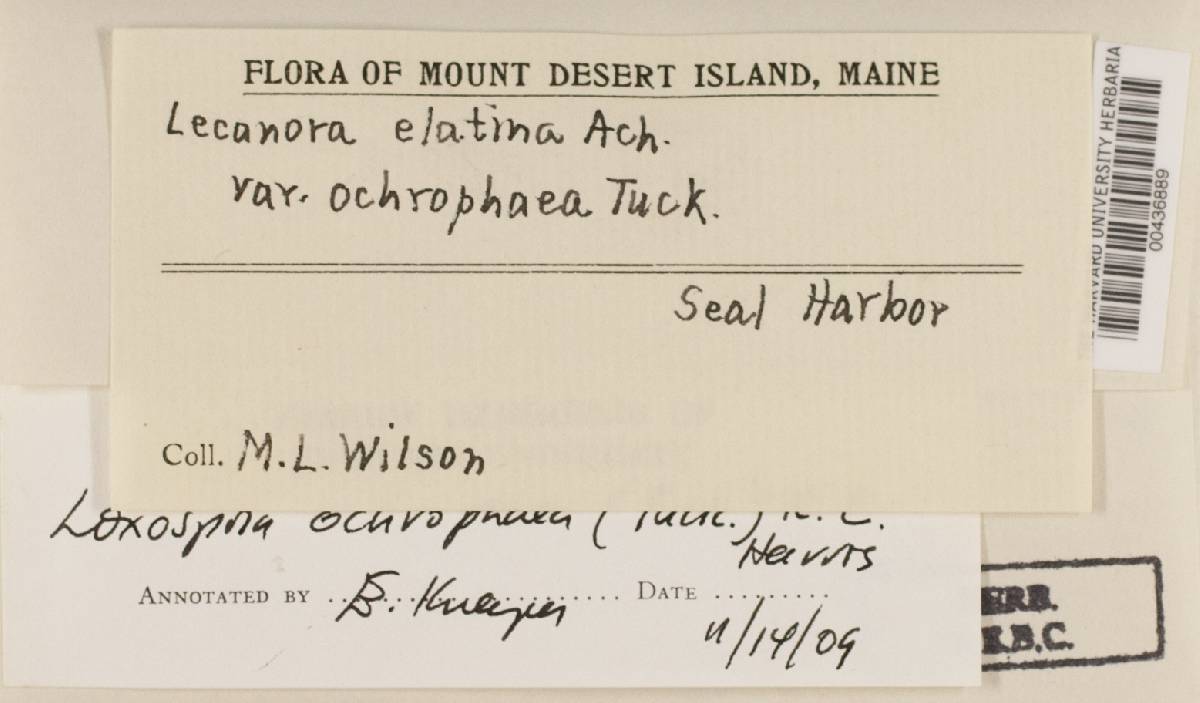 FLORA OF MOUNT DESERT ISLAND, MAINE
Lecanora elatina Ach.
var. ochrophaea Tuck.
Seal Harbor
Coll. M.L. Wilson
Loxospora ochrophaea (Tuck.) R. C.
Harris
ANNOTATED BY B. DATE
11/14/09
HARVARD UNIVERSITY HERBARIA
00436889
ERB.
B.C.